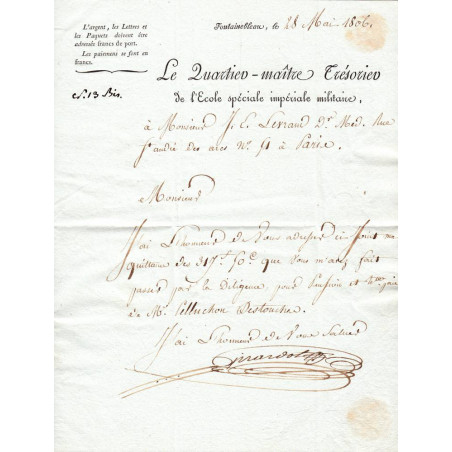 L'argent, les Lettres et
les Paquets doivent être
adressés francs de port.
Les paiemens se font en
francs.
Nº 13 Bis.
Fontainebleau, le 28 Mai 1806.
Le Quartier-maître Trésorier
de l'Ecole spéciale impériale militaire,
à Monsieur J. E. Levraud Dr Med. Rue
St andré des arcs Nº 51 à Paris.
Monsieur
J'ai L'honneur de Vous adresser ci Joint ma
quittance des 317f 50c que Vous m'avez fait
passer par la Diligence, pour
de Mr. Pelluchon Destouche.
J'ai L'honneur de vous Saluer
Girardot